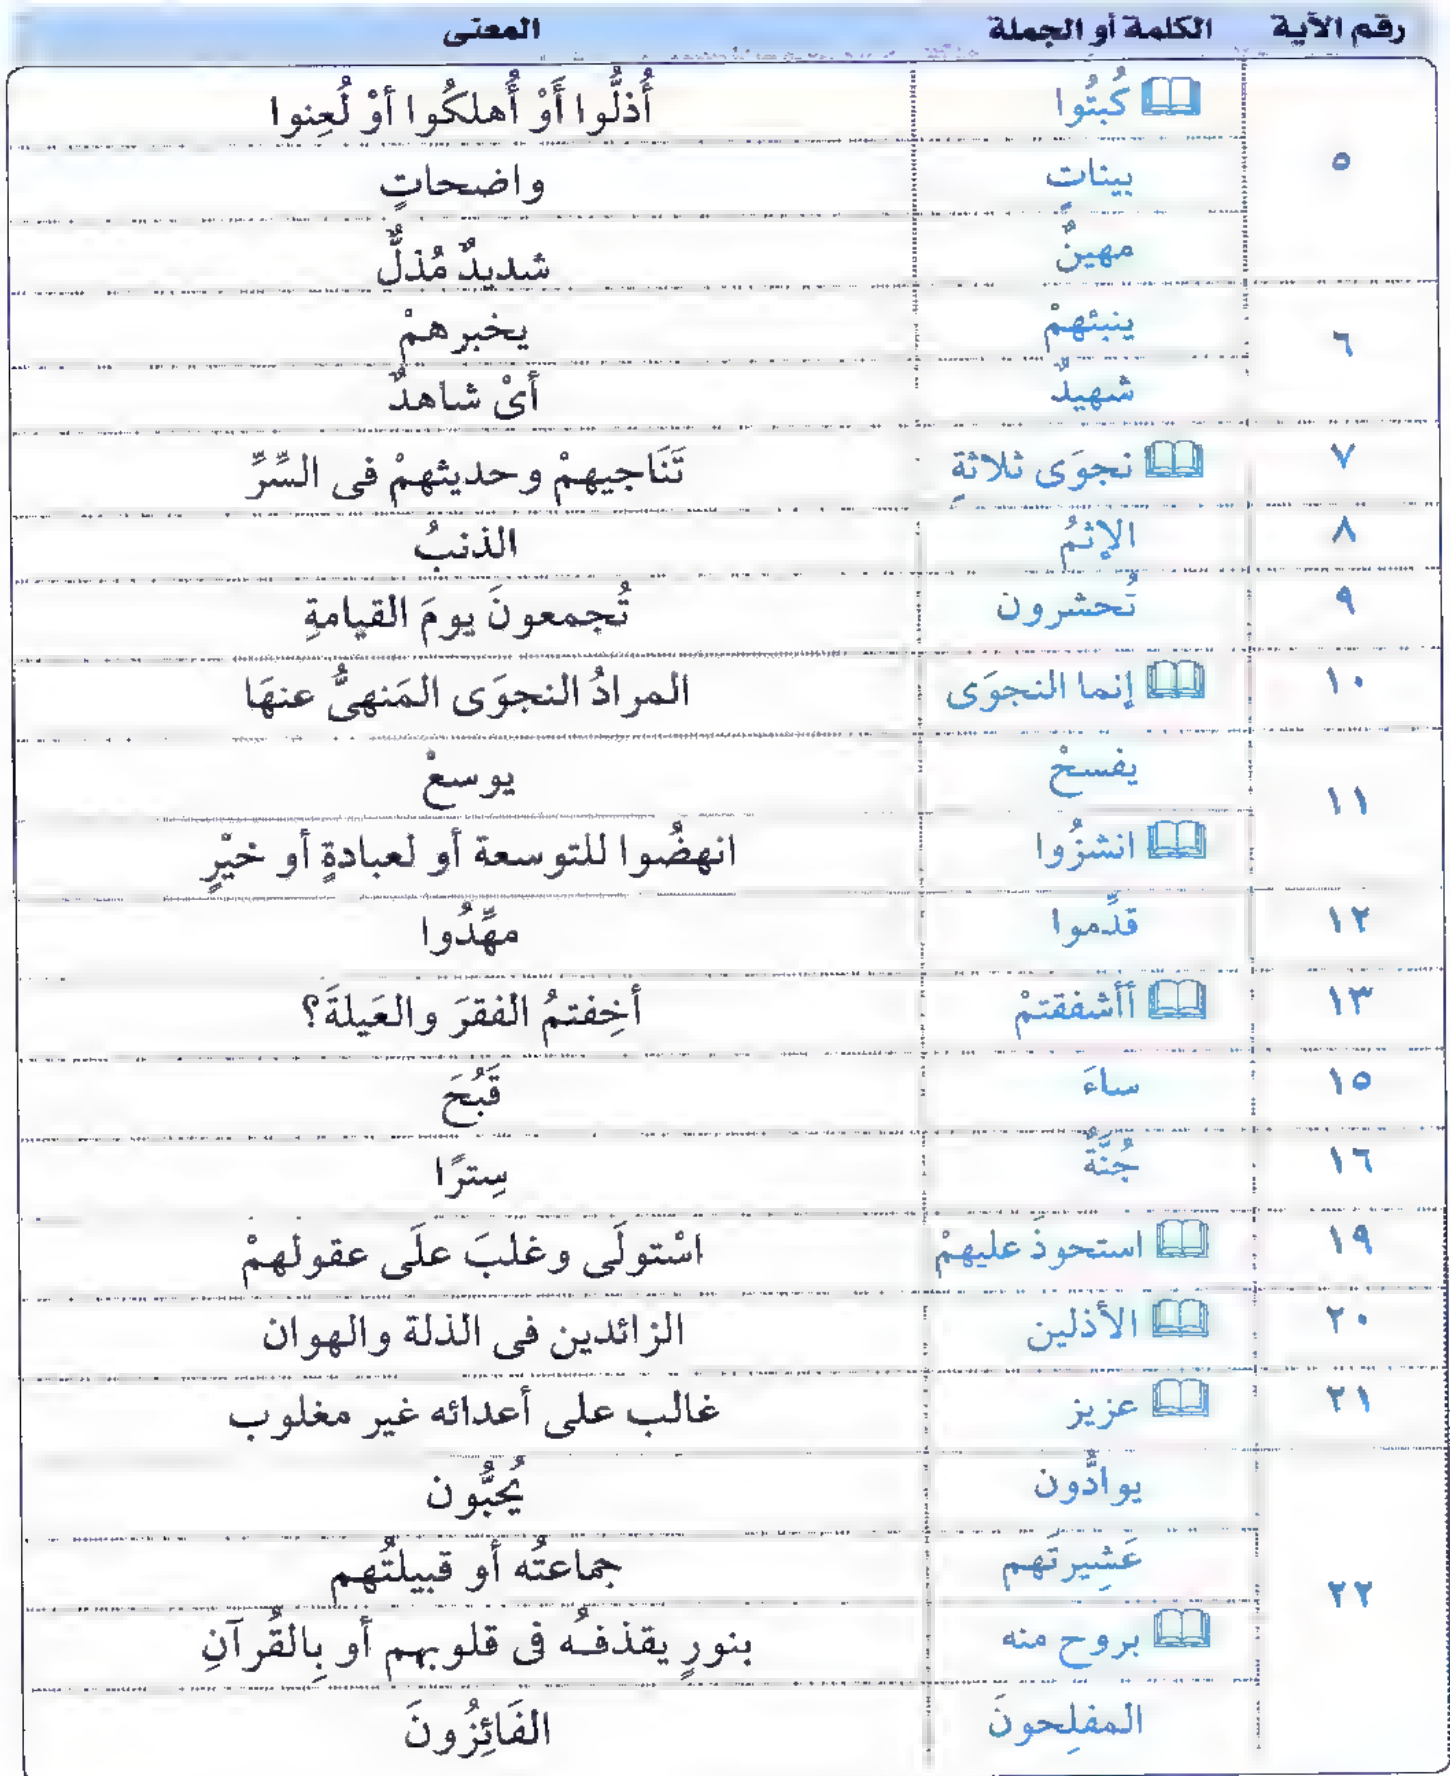 رقم الآية الكلمة أو الجملة المعنى
٥ كُبتُوا أُذلُّوا أَوْ أُهلكُوا أوْ لُعِنوا
بيناتٍ واضحاتٍ
مهينٌ شديدٌ مُذلٌّ
٦ ينبئهمْ يخبرهمْ
شهيدٌ أىْ شاهدٌ
٧ نجوَى ثلاثةٍ تَنَاجيهمْ وحديثهمْ فى السِّرِّ
٨ الإثمُ الذنبُ
٩ تُحشرون تُجمعونَ يومَ القيامةِ
١٠ إنما النجوَى المرادُ النجوَى المَنهىُّ عنهَا
١١ يفسحْ يوسعْ
انشزُوا انهضُوا للتوسعة أو لعبادةٍ أو خيْرٍ
١٢ قدِّموا مهِّدُوا
١٣ أأشفقتمْ أخِفتمُ الفقرَ والعَيلةَ؟
١٥ ساءَ قَبُحَ
١٦ جُنَّةً سِترًا
١٩ استحوذَ عليهمْ اسْتولَى وغلبَ علَى عقولهمْ
٢٠ الأذلين الزائدين فى الذلة والهوان
٢١ عزيز غالب على أعدائه غير مغلوب
٢٢ يوادُّون يُحبُّون
عَشِيرتَهم جماعتُه أو قبيلتُهم
بروح منه بنورٍ يقذفُه فى قلوبهم أو بِالقُرآنِ
المفلِحونَ الفَائِزُونَ